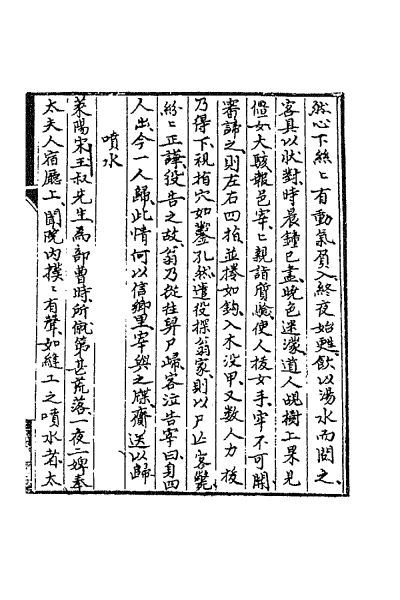 然心下絲〻有動氣負入終夜始甦飲以湯水而問之
客具以狀對時晨鐘已盡曉色迷濛道人覘樹上果見
僵女大駭報邑宰〻親詣質驗使人拔女手牢不可開
審諦之則左右四指並捲如鈎入木沒甲又數人力拔
乃得下視指穴如鑿孔然遣役探翁家則以尸亡客斃
紛〻正譁役告之故翁乃從往舁尸歸客泣告宰曰身四
人出今一人歸此情何以信鄉里宰與之牒齎送以歸
噴水
萊陽宋玉叔先生為部曹時所僦第甚荒落一夜二婢奉
太夫人宿廳上聞院內撲〻有聲如縫工之噴水者太